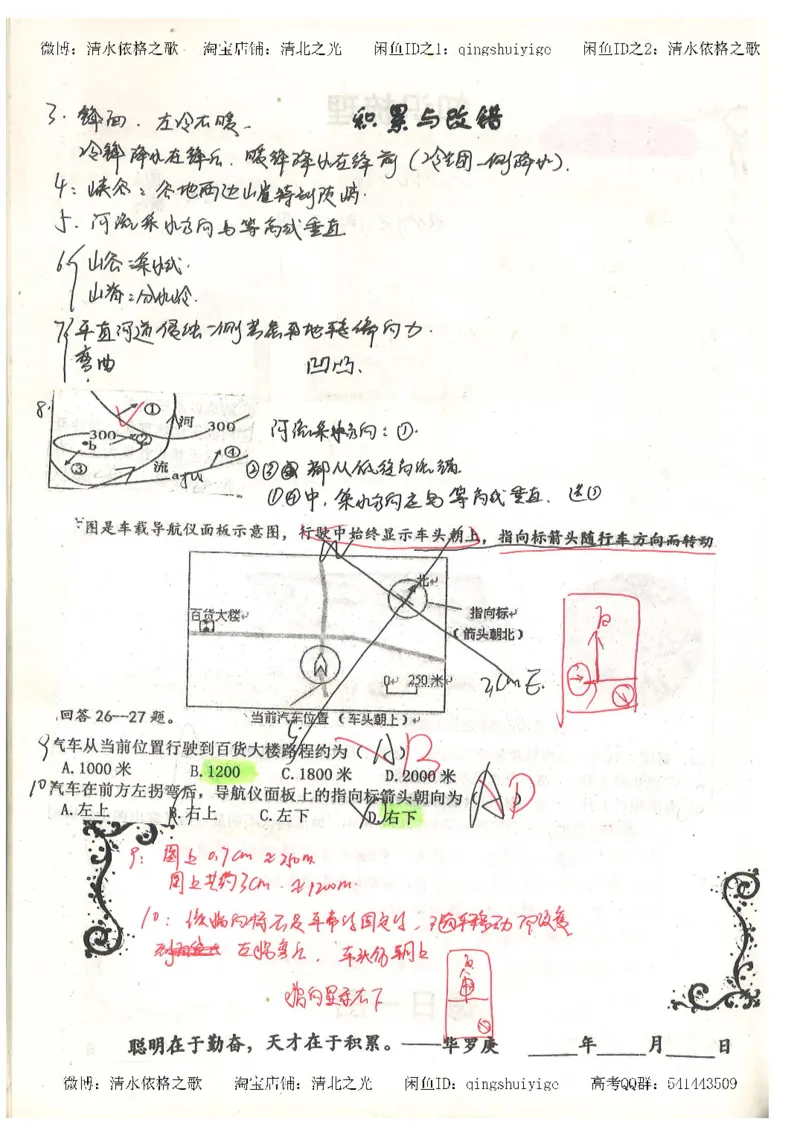 微博：清水依格之歌 淘宝店铺：清北之光 闲鱼ID之1：qingshuiyige 闲鱼ID之2：清水依格之歌
积累与改错
3. 锋面．左冷右暖．
冷锋降水在锋后．暖锋降水在锋前（冷气团一侧降水）．
4：峡谷：谷地两边山崖特别陡峭．
5．河流集水方向与等高线垂直
6 山谷：集水线．
山脊：分水岭．
7 平直河道侵蚀一侧考虑用地转偏向力．
弯曲 凹凸．
8．
① 河 300
300 ② b ④
③ 流 a
河流集水方向：①．
都从低往高流错．
①④中，集水方向应与等高线垂直．选①
图是车载导航仪面板示意图，行驶中始终显示车头朝上，指向标箭头随行车方向而转动
N
北
百货大楼
指向标
（箭头朝北）
0 250米
E
北
当前汽车位置（车头朝上）
回答 26—27 题。
9 汽车从当前位置行驶到百货大楼路程约为（A）B
A.1000 米 B.1200 C.1800 米 D.2000 米
10 汽车在前方左拐弯后，导航仪面板上的指向标箭头朝向为 A D
A.左上 B.右上 C.左下 D.右下
9：图上 0.7cm ≈250m
图上共约3cm．≈1200m
左拐弯后，车头仍朝上
指向显示右下
聪明在于勤奋，天才在于积累。——华罗庚 ____年____月____日
微博：清水依格之歌 淘宝店铺：清北之光 闲鱼ID：qingshuiyige 高考QQ群：541443509